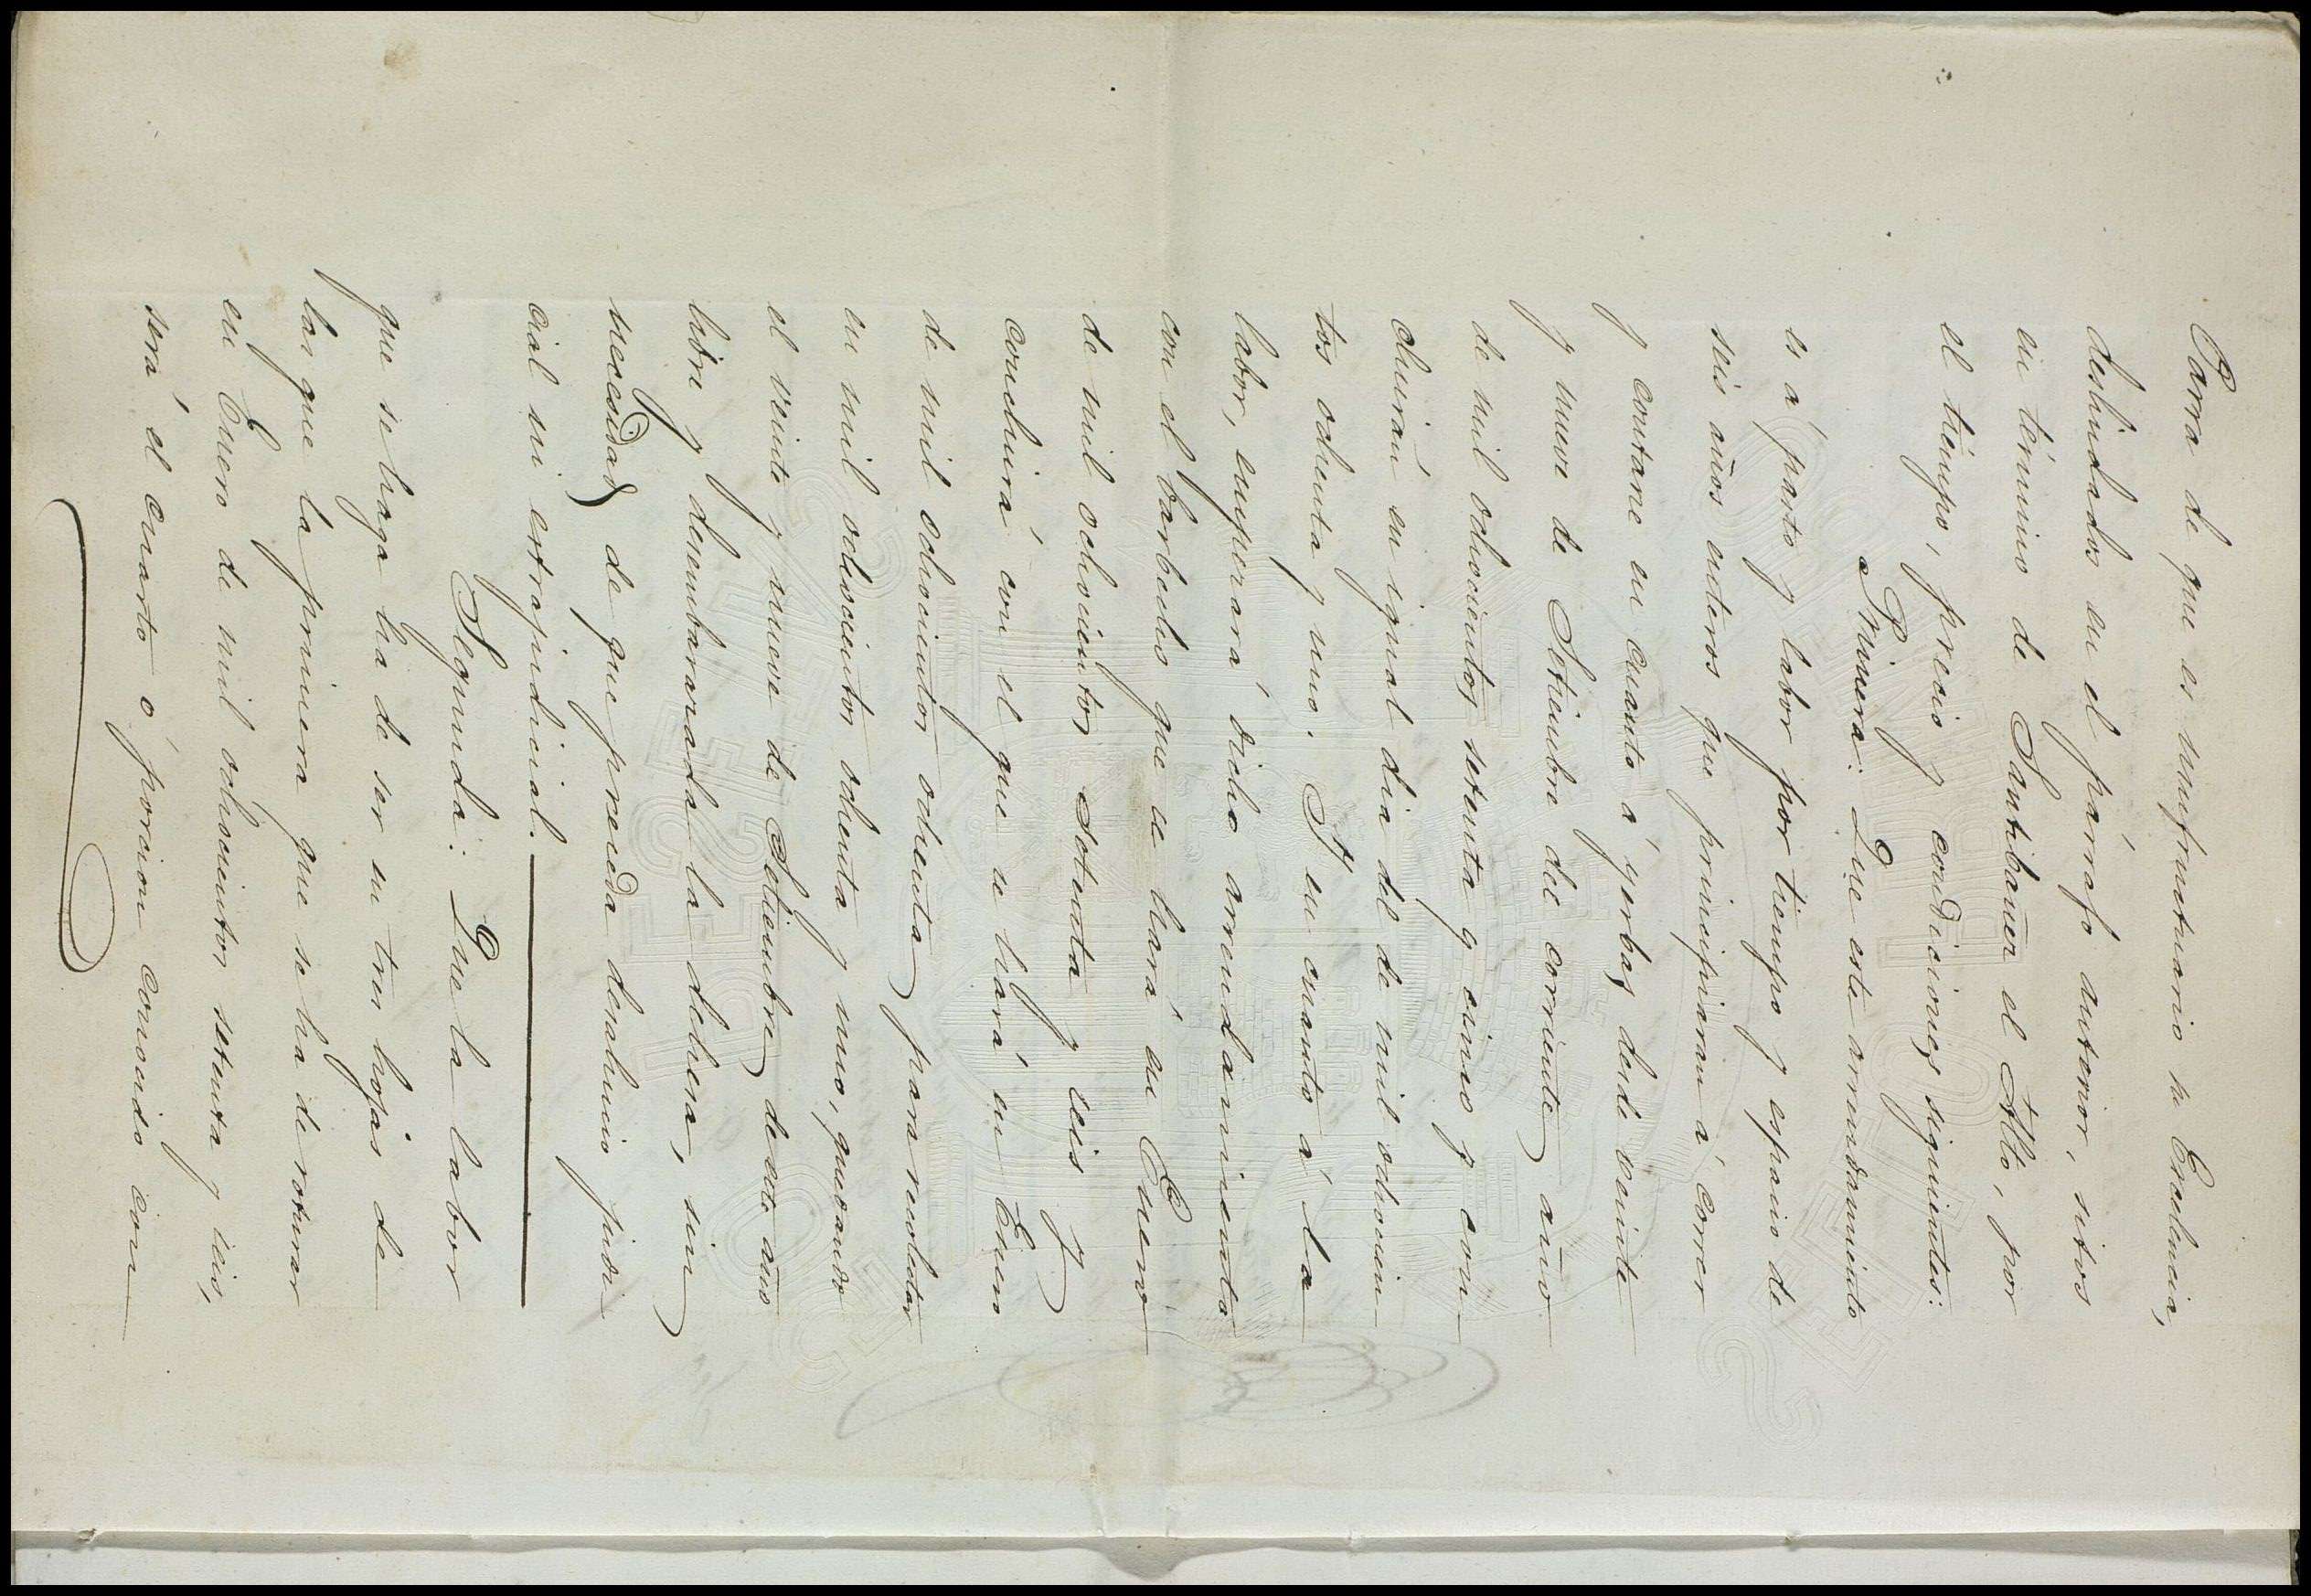 Parra de que es usufructuario su Excelencia,
deslindados en el párrafo anterior, sitos
en término de Santibañez el Alto, por
el tiempo, precio y condiciones siguientes:
Primera: Que este arrendamiento
es á pasto y labor por tiempo y espacio de
seis años enteros que principiaran á correr
y contarse en cuanto á yerbas desde veinte
y nueve de Setiembre del corriente año
de mil ochocientos setenta y cinco y con
cluirán en igual dia del de mil ochocien
tos ochenta y uno. Y en cuanto á la
labor, empezará dicho arrendamiento
con el barbecho que se hará en Enero
de mil ochocientos setenta y seis y
concluirá con el que se hará en Enero
de mil ochocientos ochenta para recolectar
en mil ochocientos ochenta y uno, quedando
el veinte y nueve de Setiembre de este año
libre y desembarazada la dehesa, sin
necesidad de que preceda desahucio judi
cial ni extrajudicial.
Segunda: Que la labor
que se haga ha de ser en tres hojas de
las que la primera que se ha de roturar
en Enero de mil ochocientos setenta y seis,
será el cuarto ó porcion conocido con